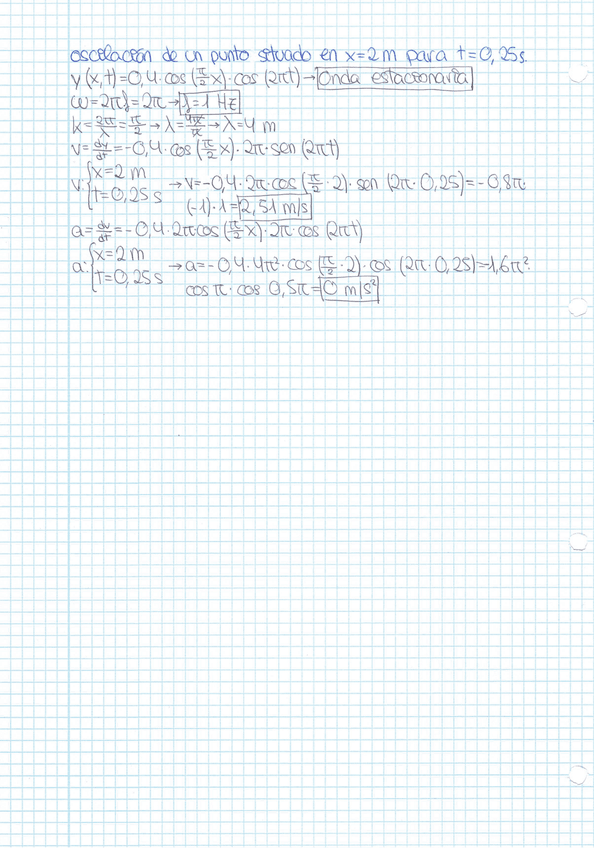 oscilación de un punto situado en x=2m para t=0,25s.
y(x,t)=0,4·cos(π/2 x)·cos(2πt)→Onda estacionaria
ω=2πf=2π→f=1 Hz
k=2π/λ=π/2→λ=4π/π→λ=4 m
v=dy/dt=-0,4·cos(π/2 x)·2π·sen(2πt)
v:{x=2m t=0,25s →v=-0,4·2π·cos(π/2·2)·sen(2π·0,25)=-0,8π·
(-1)·1=2,51 m/s
a=dv/dt=-0,4·2π·cos(π/2 x)·2π·cos(2πt)
a:{x=2m t=0,25s →a=-0,4·4π²·cos(π/2·2)·cos(2π·0,25)=-1,6π²·
cos π·cos 0,5π=0 m/s²